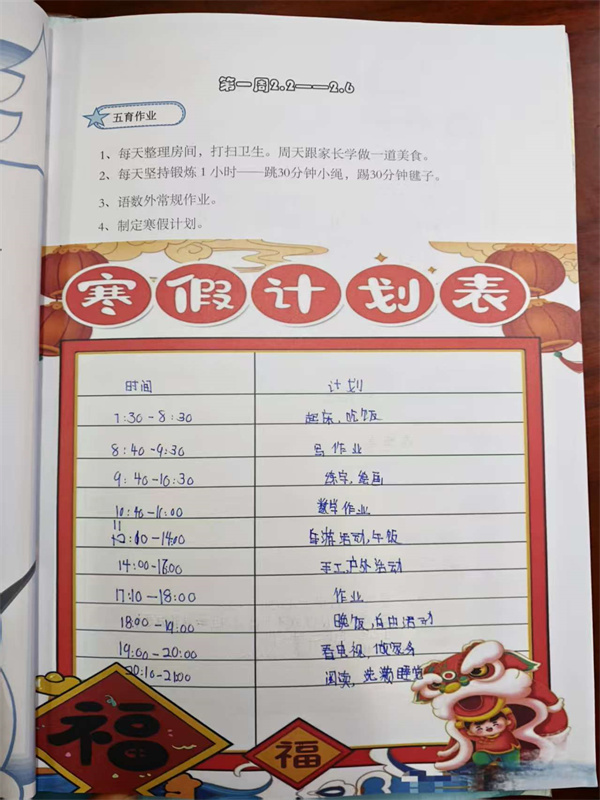 第一周2.2——2.6
五育作业
1、每天整理房间，打扫卫生。周天跟家长学做一道美食。
2、每天坚持锻炼1小时——跳30分钟小绳，踢30分钟毽子。
3、语数外常规作业。
4、制定寒假计划。
寒假计划表
时间 计划
7:30-8:30 起床，吃饭
8:40-9:30 写作业
9:40-10:30 练字，绘画
10:40-11:00 数学作业
:10-14:00 活动，午饭
14:00-16:00 手工，户外活动
17:10-18:00 作业
18:00-19:00 晚饭，自由活动
19:00-20:00 看电视，做家务
20:10-21:00 阅读，洗漱睡觉
福
福